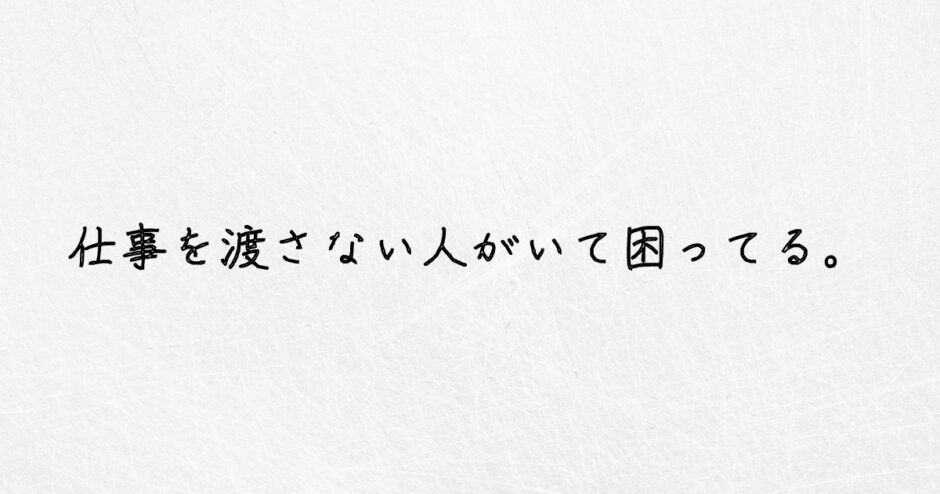 仕事を渡さない人がいて困ってる。